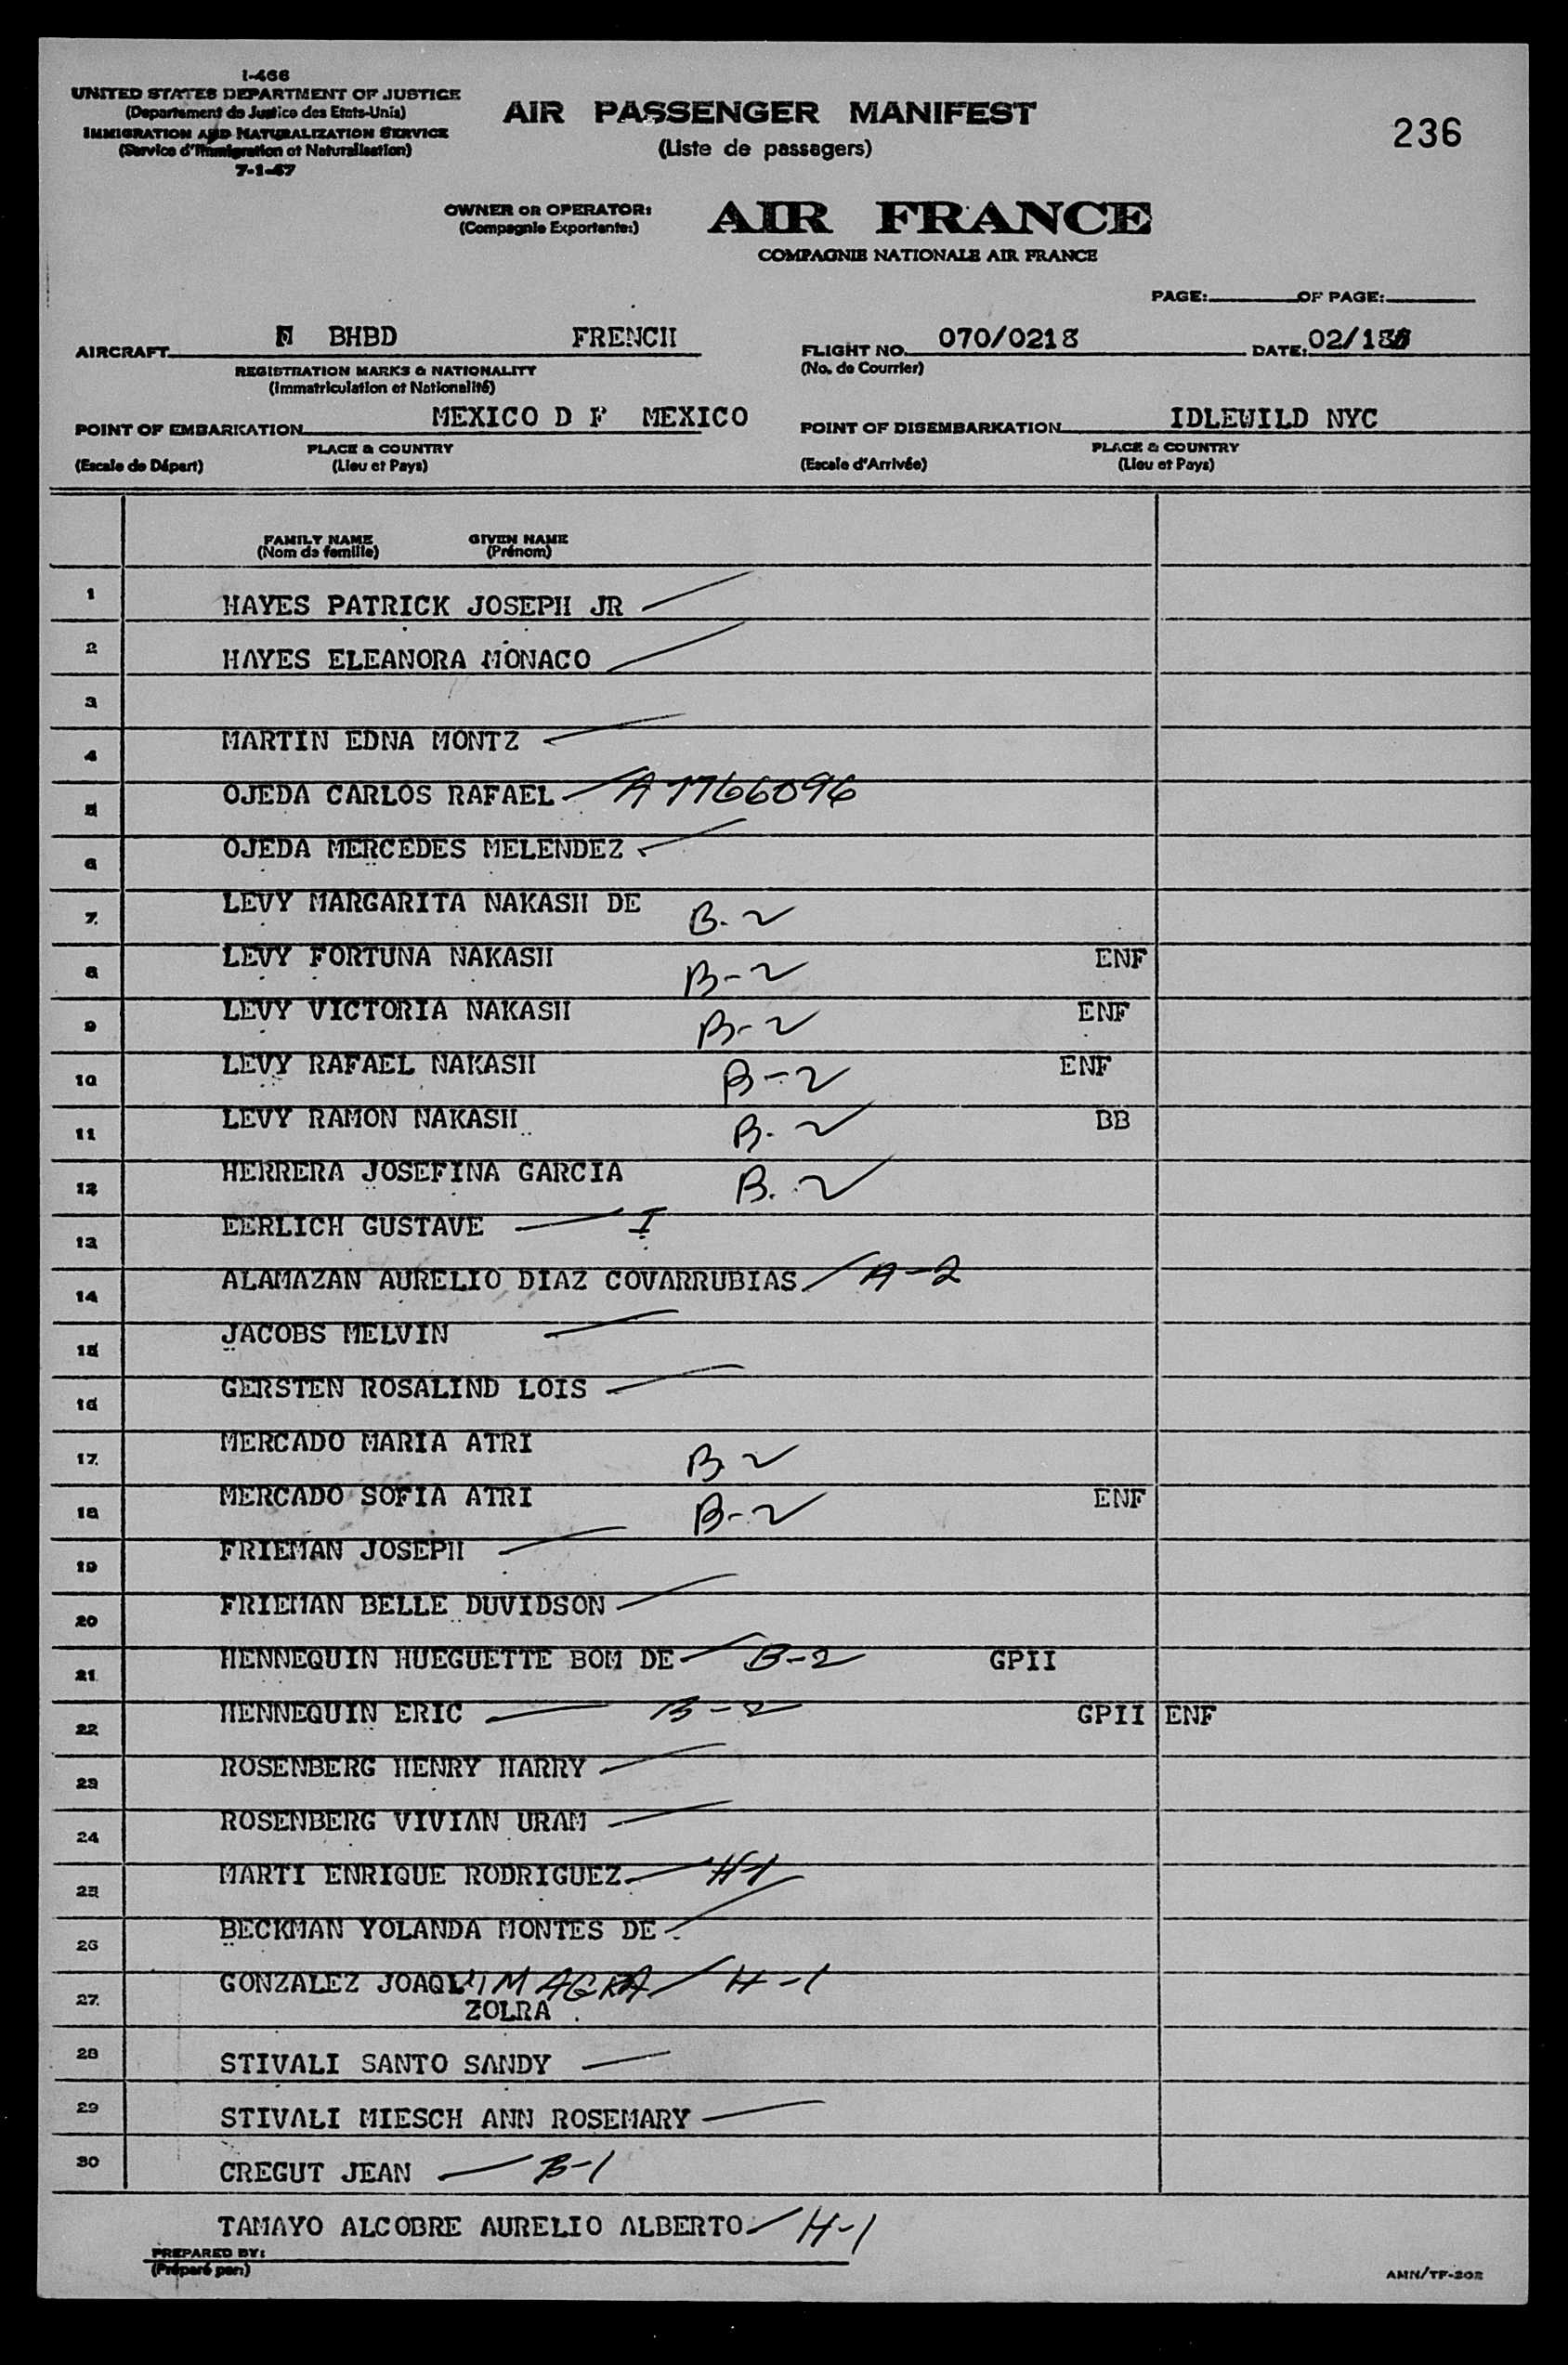 I-466
UNITED STATES DEPARTMENT OF JUSTICE
(Departement de Justice des Etats-Unis)
IMMIGRATION AND NATURALIZATION SERVICE
(Service d'Immigration et Naturalisation)
7-1-47
AIR PASSENGER MANIFEST
(Liste de passagers)
236
OWNER OR OPERATOR: AIR FRANCE
(Compagnie Exportante:)
COMPAGNIE NATIONALE AIR FRANCE
PAGE: OF PAGE:
AIRCRAFT BHBD FRENCH
REGISTRATION MARKS & NATIONALITY
(Immatriculation et Nationalité)
FLIGHT NO. 070/0218 DATE: 02/18
(No. de Courrier)
POINT OF EMBARKATION MEXICO D F MEXICO
PLACE & COUNTRY
(Escale de Départ) (Lieu et Pays)
POINT OF DISEMBARKATION IDLEWILD NYC
PLACE & COUNTRY
(Escale d'Arrivée) (Lieu et Pays)
FAMILY NAME GIVEN NAME
(Nom de famille) (Prénom)
1 HAYES PATRICK JOSEPH JR
2 HAYES ELEANORA MONACO
3
4 MARTIN EDNA MONTZ
5 OJEDA CARLOS RAFAEL A 7766096
6 OJEDA MERCEDES MELENDEZ
7 LEVY MARGARITA NAKASH DE B-2
8 LEVY FORTUNA NAKASH B-2 ENF
9 LEVY VICTORIA NAKASH B-2 ENF
10 LEVY RAFAEL NAKASH B-2 ENF
11 LEVY RAMON NAKASH B-2 BB
12 HERRERA JOSEFINA GARCIA B-2
13 EERLICH GUSTAVE I
14 ALAMAZAN AURELIO DIAZ COVARRUBIAS A-2
15 JACOBS MELVIN
16 GERSTEN ROSALIND LOIS
17 MERCADO MARIA ATRI B-2
18 MERCADO SOFIA ATRI B-2 ENF
19 FRIEMAN JOSEPH
20 FRIEMAN BELLE DUVIDSON
21 HENNEQUIN HUEGUETTE BOM DE B-2 GPII
22 HENNEQUIN ERIC B-2 GPII ENF
23 ROSENBERG HENRY HARRY
24 ROSENBERG VIVIAN URAM
25 MARTI ENRIQUE RODRIGUEZ H-1
26 BECKMAN YOLANDA MONTES DE
27 GONZALEZ JOAQUIM H-1
ZOLRA
28 STIVALI SANTO SANDY
29 STIVALI MIESCH ANN ROSEMARY
30 CREGUT JEAN B-1
TAMAYO ALCOBRE AURELIO ALBERTO H-1
PREPARED BY:
(Préparé par:)
AMN/TF-202